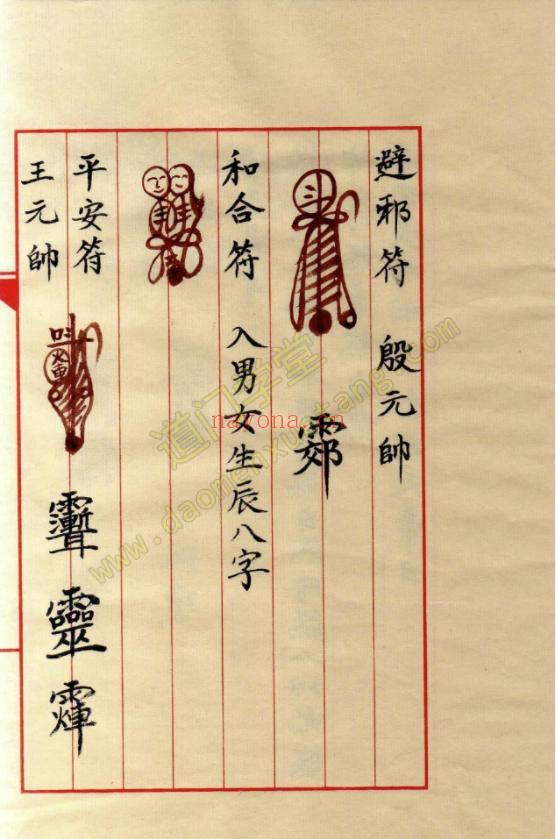 避邪符 殷元帥
和合符 入男女生辰八字
平安符
靈
王元帥
道门学堂
nayona.cn
www.daomenxuetang.com